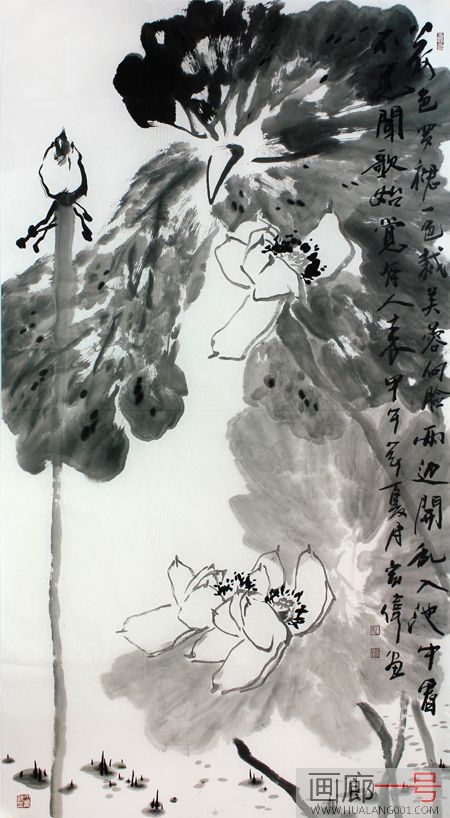 荷色罗裙一色裁芙蓉向脸兩边開乱入池中看
不見聞歌始覺有人来甲午年夏月偉画
画廊一号
WWW.HUALANG001.COM